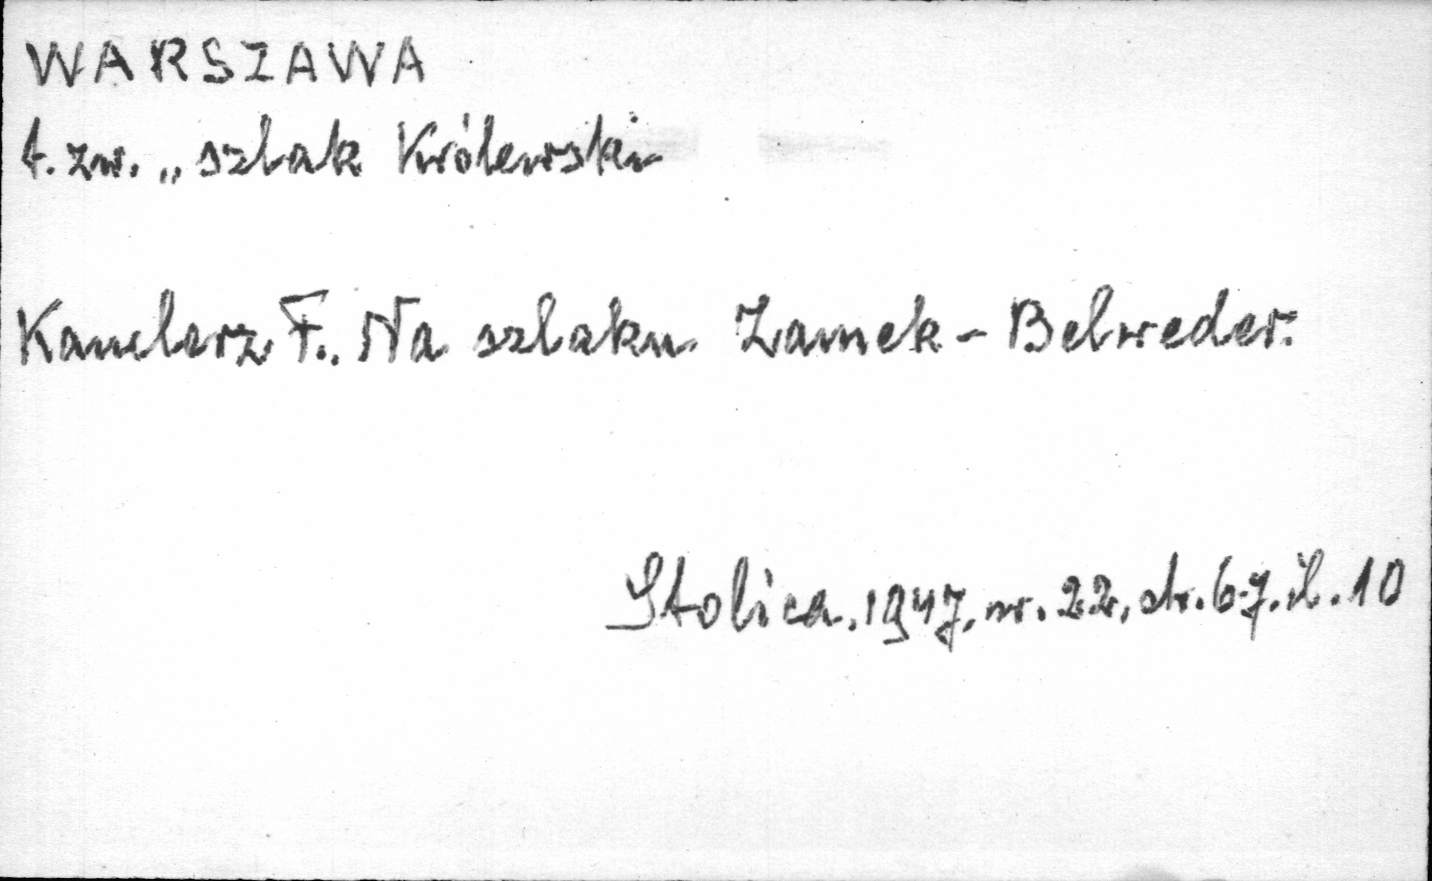 WARSZAWA
t. zw. „szlak Królewski
Kanclerz F.. Na szlaku Zamek - Belweder.
Stolica. 1947, nr. 22, str. 6-7. il. 10